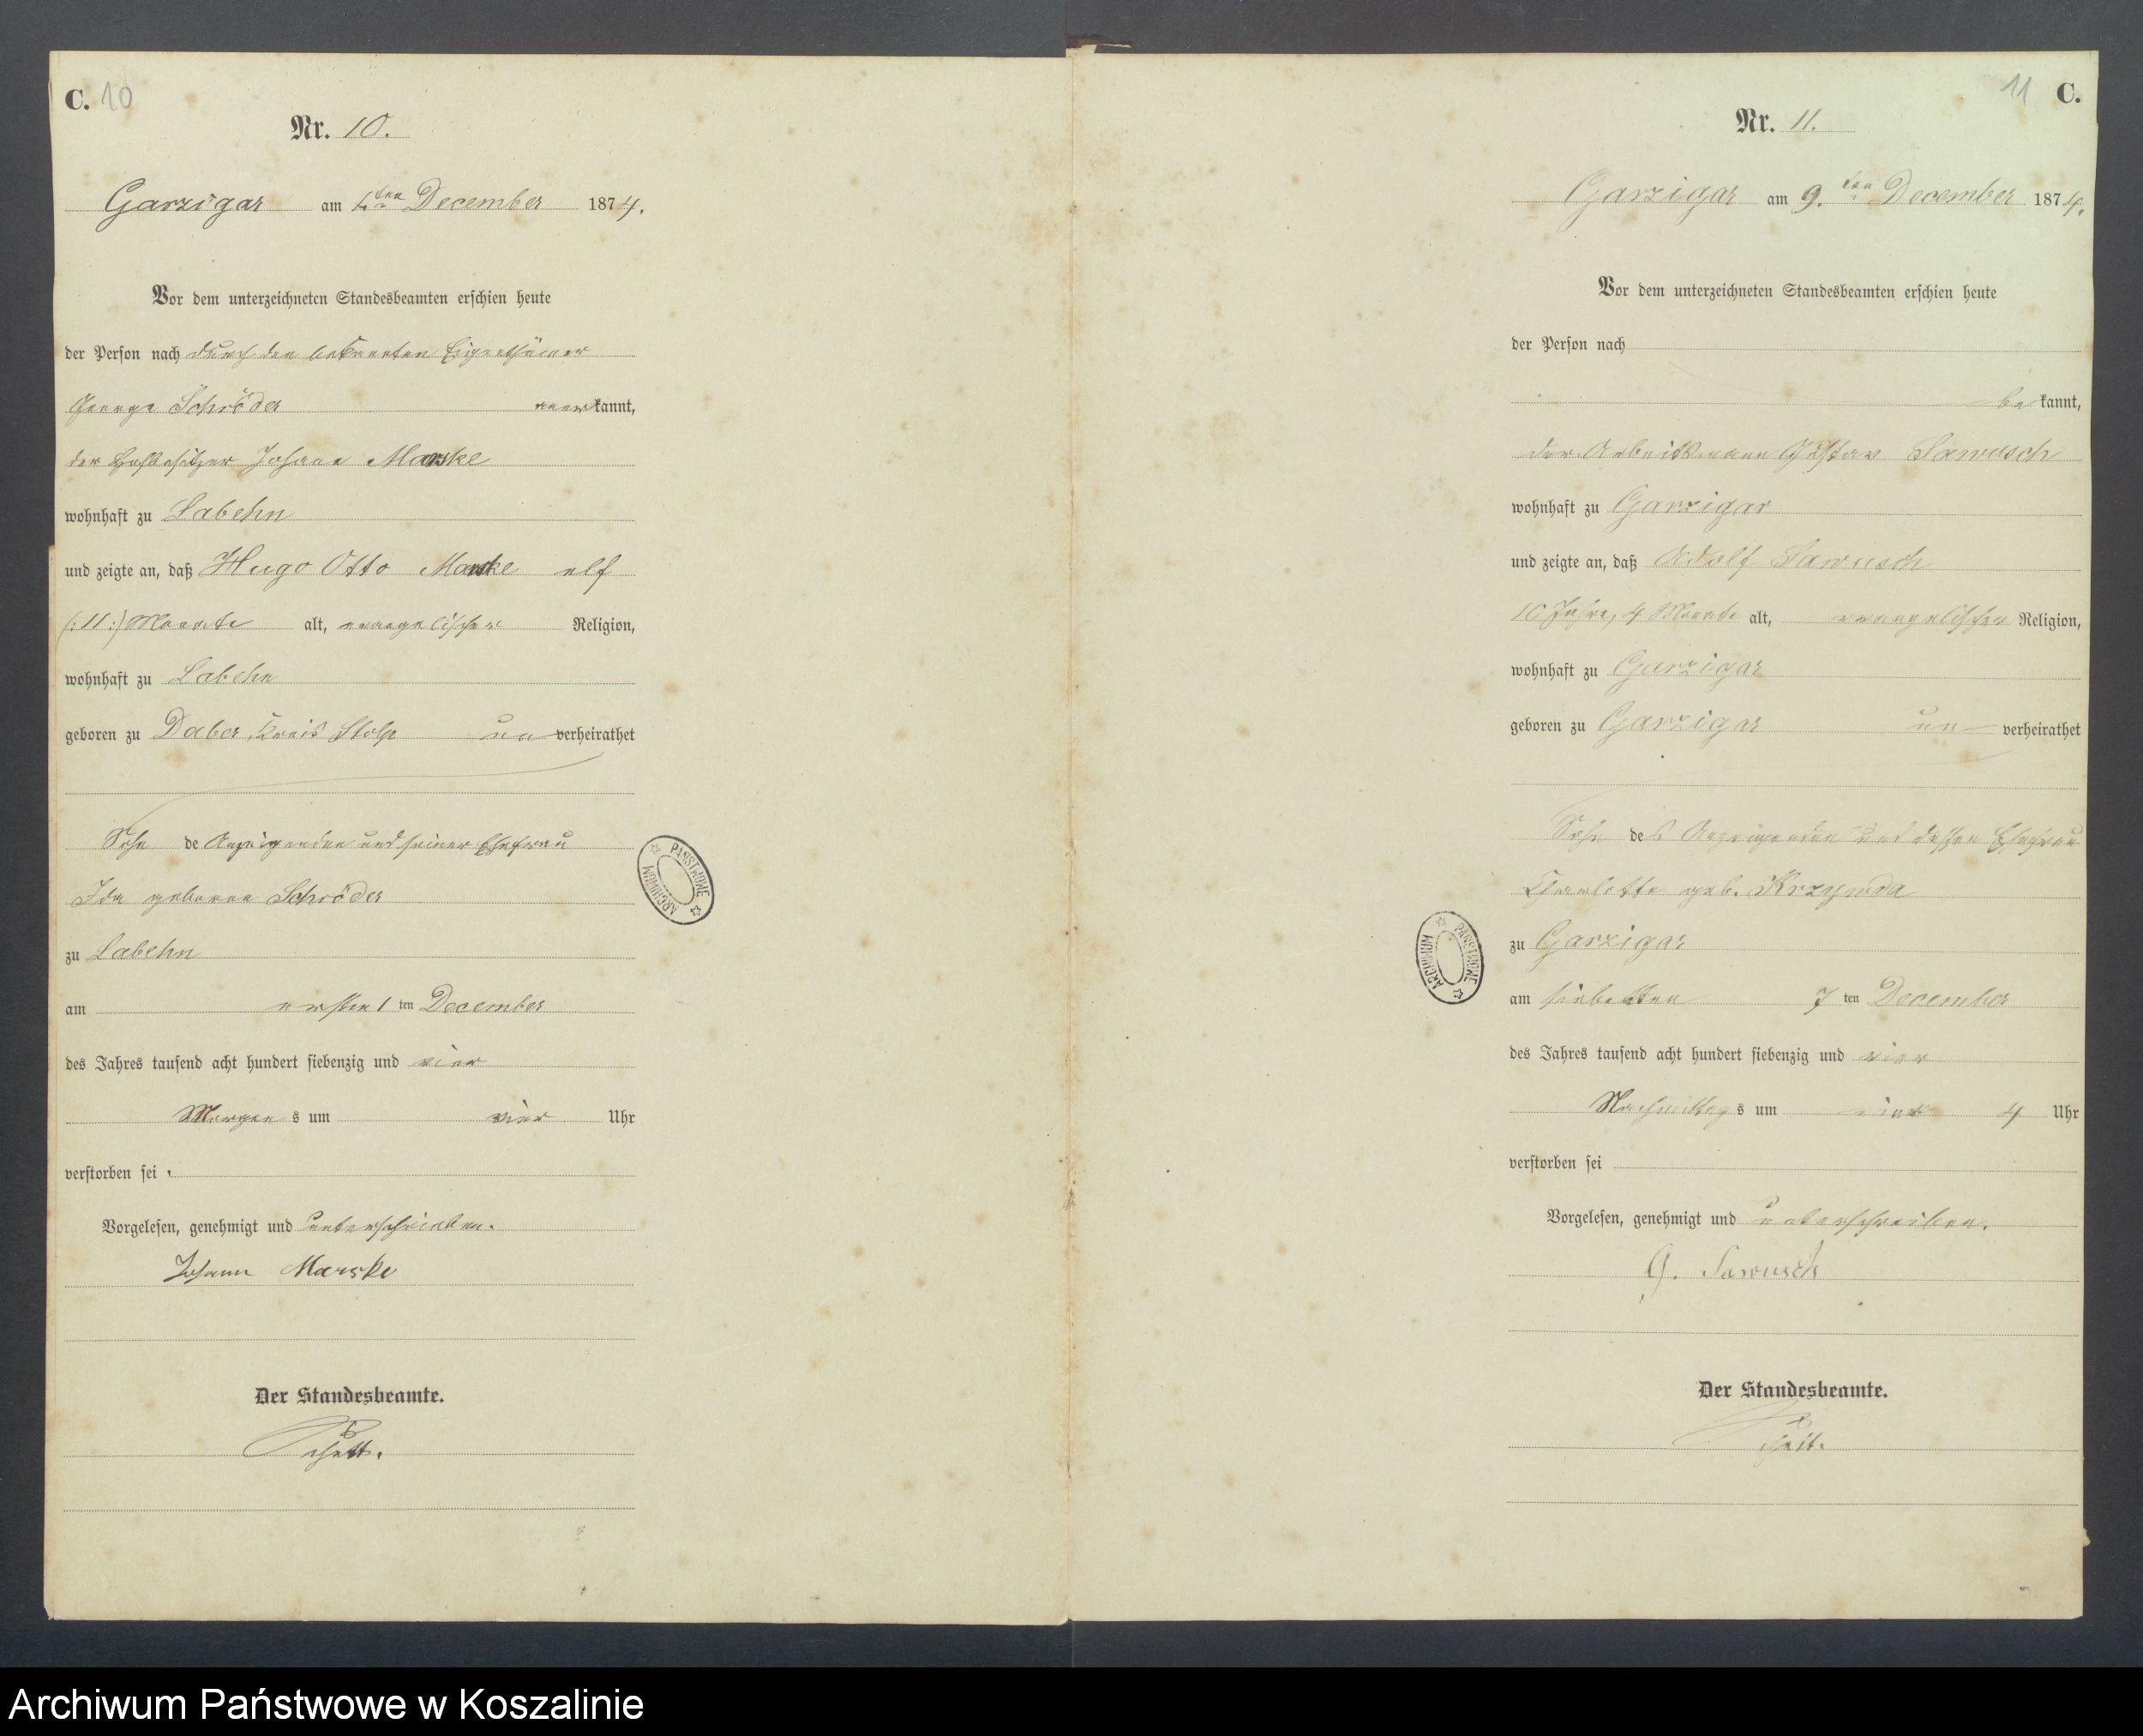 C. 10
Nr. 10.
Garzigar am 4ten December 1874.
Vor dem unterzeichneten Standesbeamten erschien heute
der Person nach durch den bekannten Eigenthümer
George Schröder anerkannt,
der Hofbesitzer Johann Marske
wohnhaft zu Labehn
und zeigte an, daß Hugo Otto Marske elf
(:11:) Monate alt, evangelischer Religion,
wohnhaft zu Labehn
geboren zu Daber, Kreis Stolp unverheirathet
Sohn de Anzeigenden und seiner Ehefrau
Ida geborene Schröder
zu Labehn
am ersten 1 ten December
des Jahres tausend acht hundert siebenzig und vier
Morgens um vier Uhr
verstorben sei.
Vorgelesen, genehmigt und unterschrieben.
Johann Marske
Der Standesbeamte.
ARCHIWUM PAŃSTWOWE
11 C.
Nr. 11.
Garzigar am 9.ten December 1874.
Vor dem unterzeichneten Standesbeamten erschien heute
der Person nach
bekannt,
der Arbeitsmann Gustav Sawusch
wohnhaft zu Garzigar
und zeigte an, daß Adolf Sawusch
10 Jahre, 4 Monate alt, evangelischen Religion,
wohnhaft zu Garzigar
geboren zu Garzigar un- verheirathet
Sohn des Anzeigenden und dessen Ehefrau
Charlotte geb. Krzymda
zu Garzigar
am siebenten 7 ten December
des Jahres tausend acht hundert siebenzig und vier
Nachmittags um vier 4 Uhr
verstorben sei
Vorgelesen, genehmigt und unterschrieben.
G. Sawusch
Der Standesbeamte.
ARCHIWUM PAŃSTWOWE
Archiwum Państwowe w Koszalinie